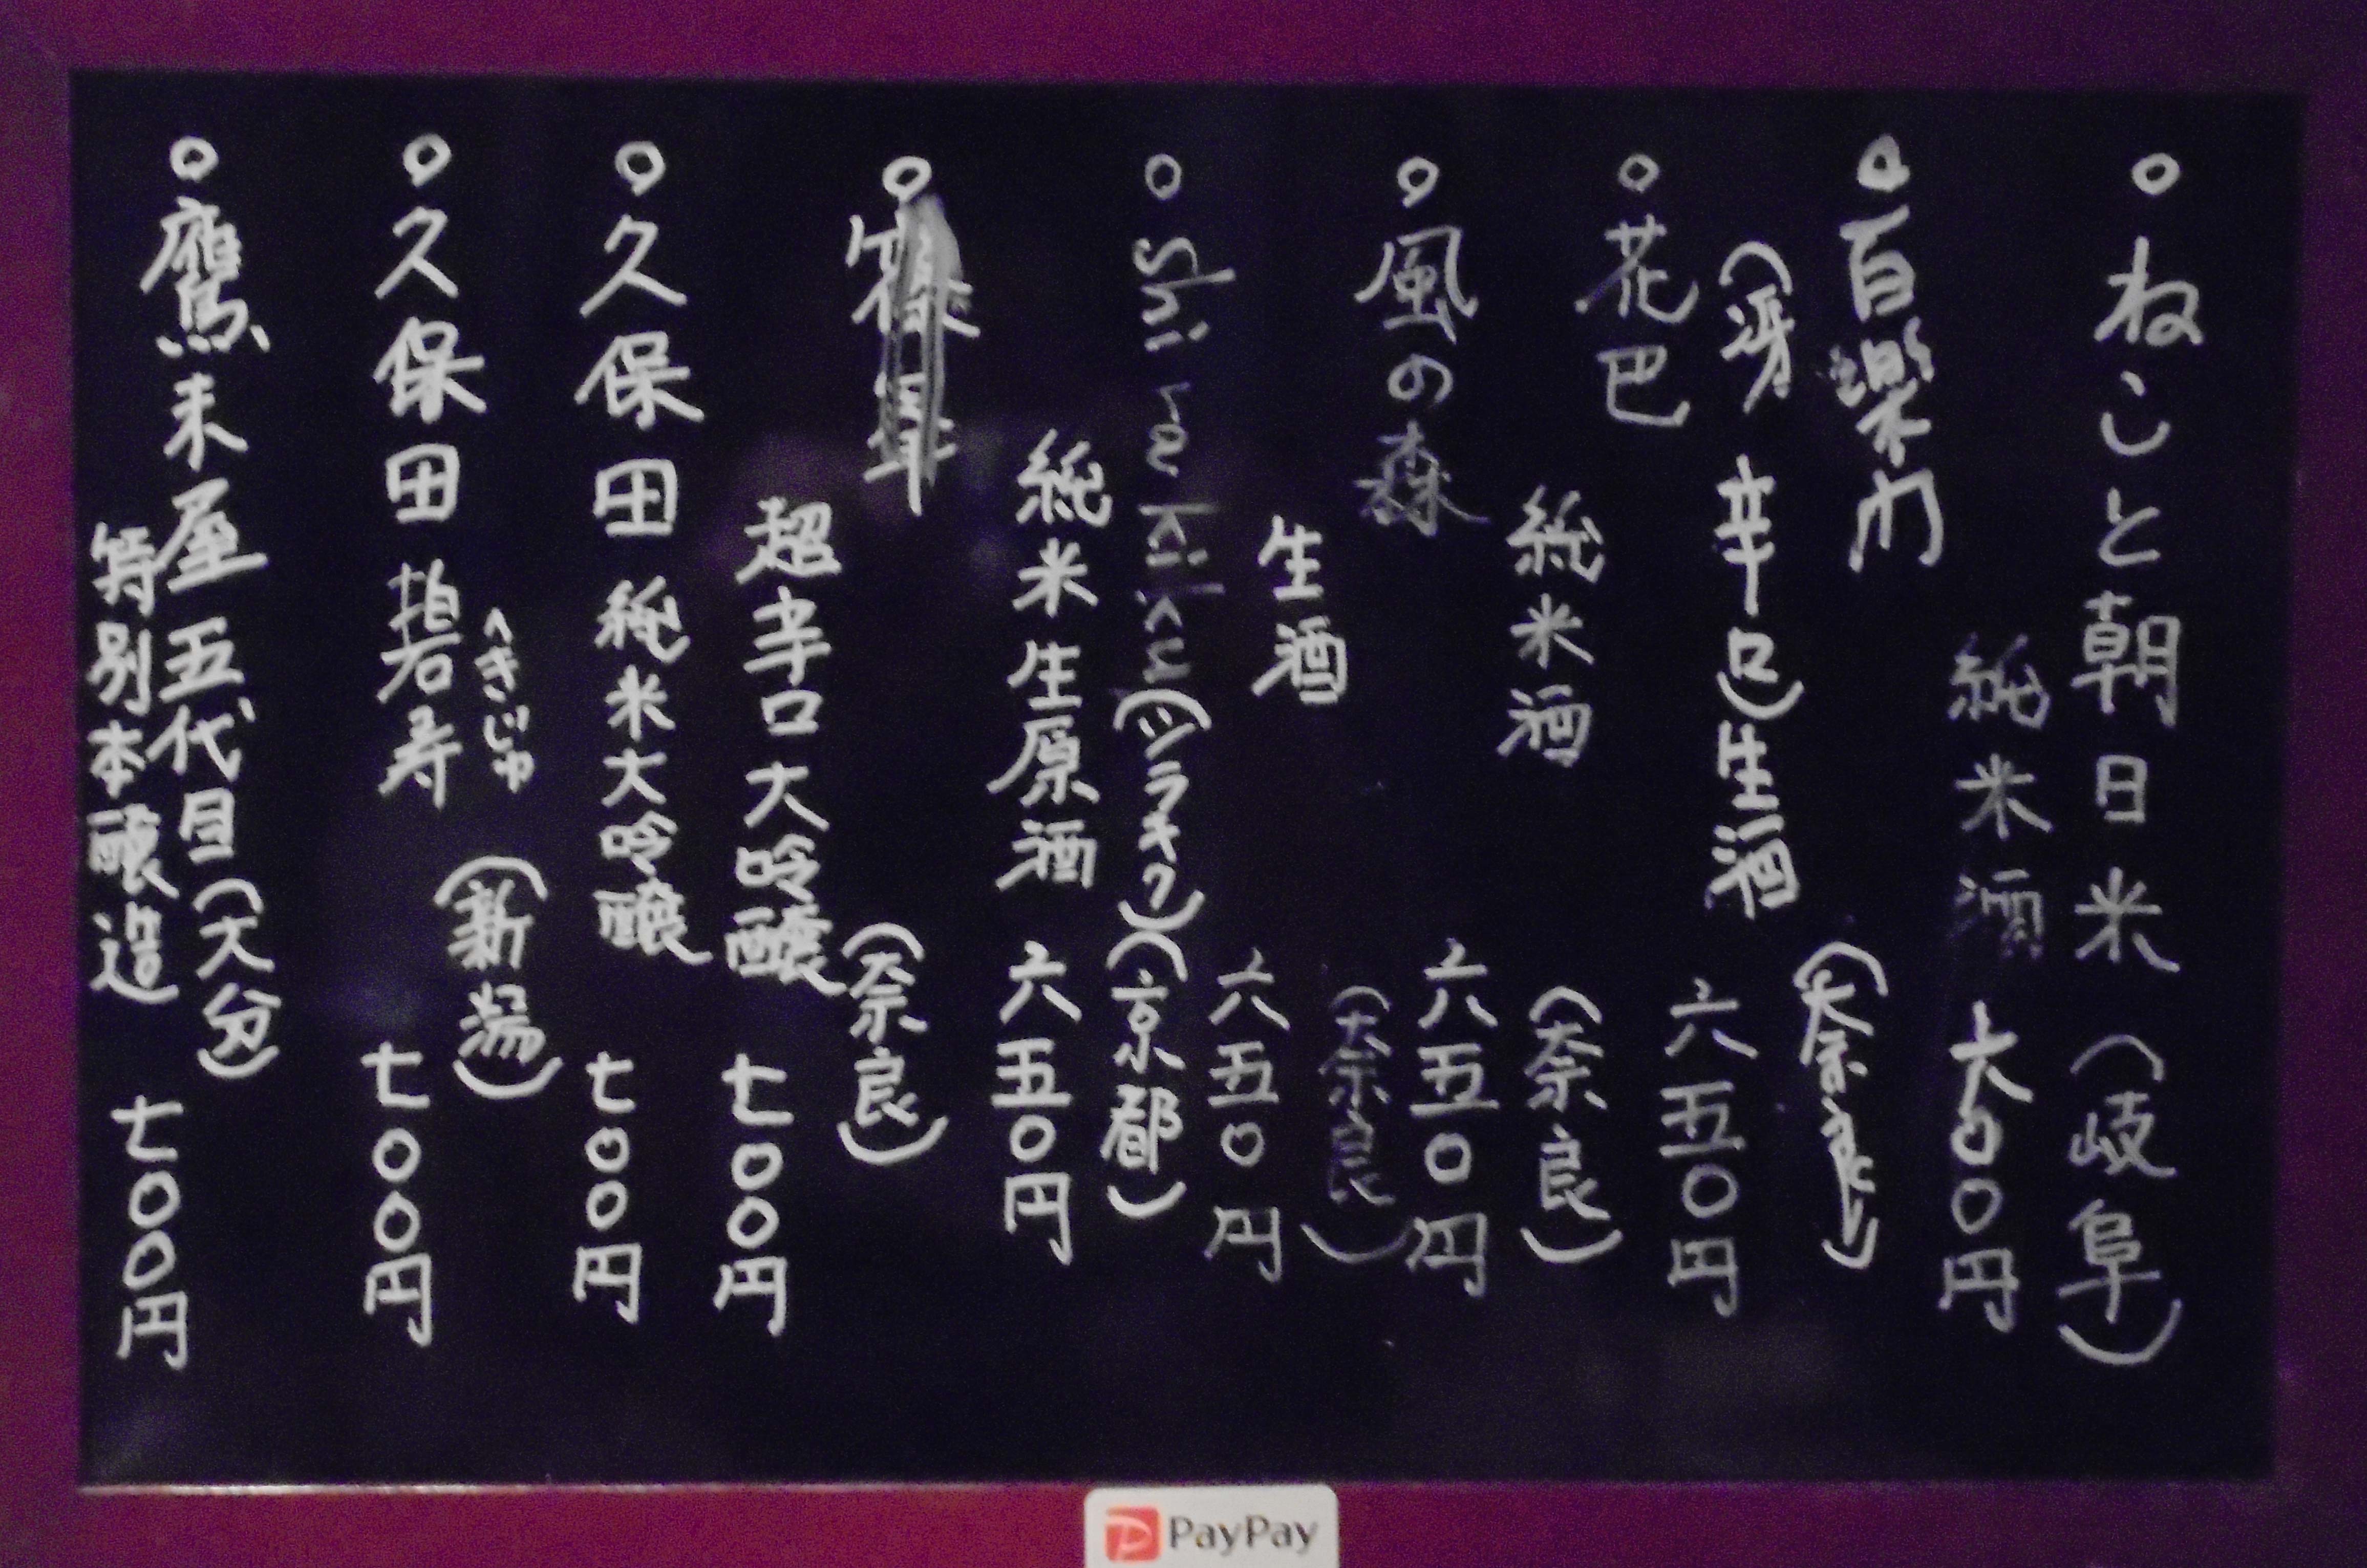 ねこと朝日米(岐阜)
純米酒 六00円
百楽門
(冴 辛口)生酒
(奈良)
六五0円
花巴
純米酒
(奈良)
六五0円
風の森
生酒
(奈良)
六五0円
Shirakiku(シラキク)(京都)
純米生原酒 六五0円
(奈良)
超辛口大吟醸 七00円
久保田 純米大吟醸 七00円
久保田 碧寿 (新潟)
へきじゅ
七00円
鷹来屋 五代目(大分)
特別本醸造 七000円
PayPay